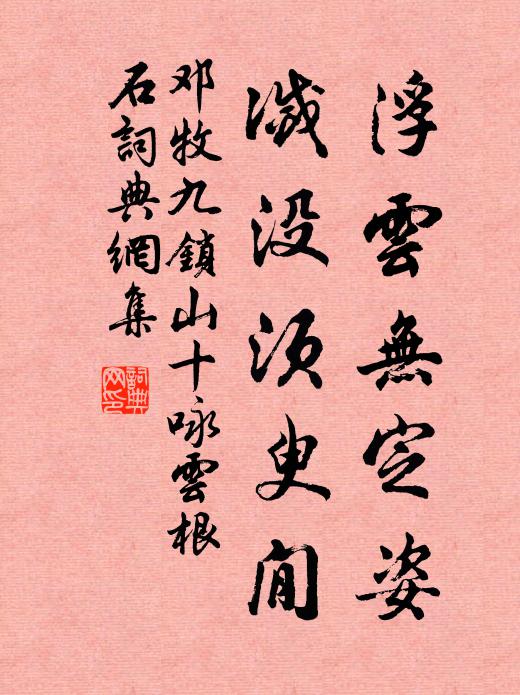 浮雲無定姿
滅没須臾間
邓牧九鎖山十咏雲根
石詞典網集
詞典
网印